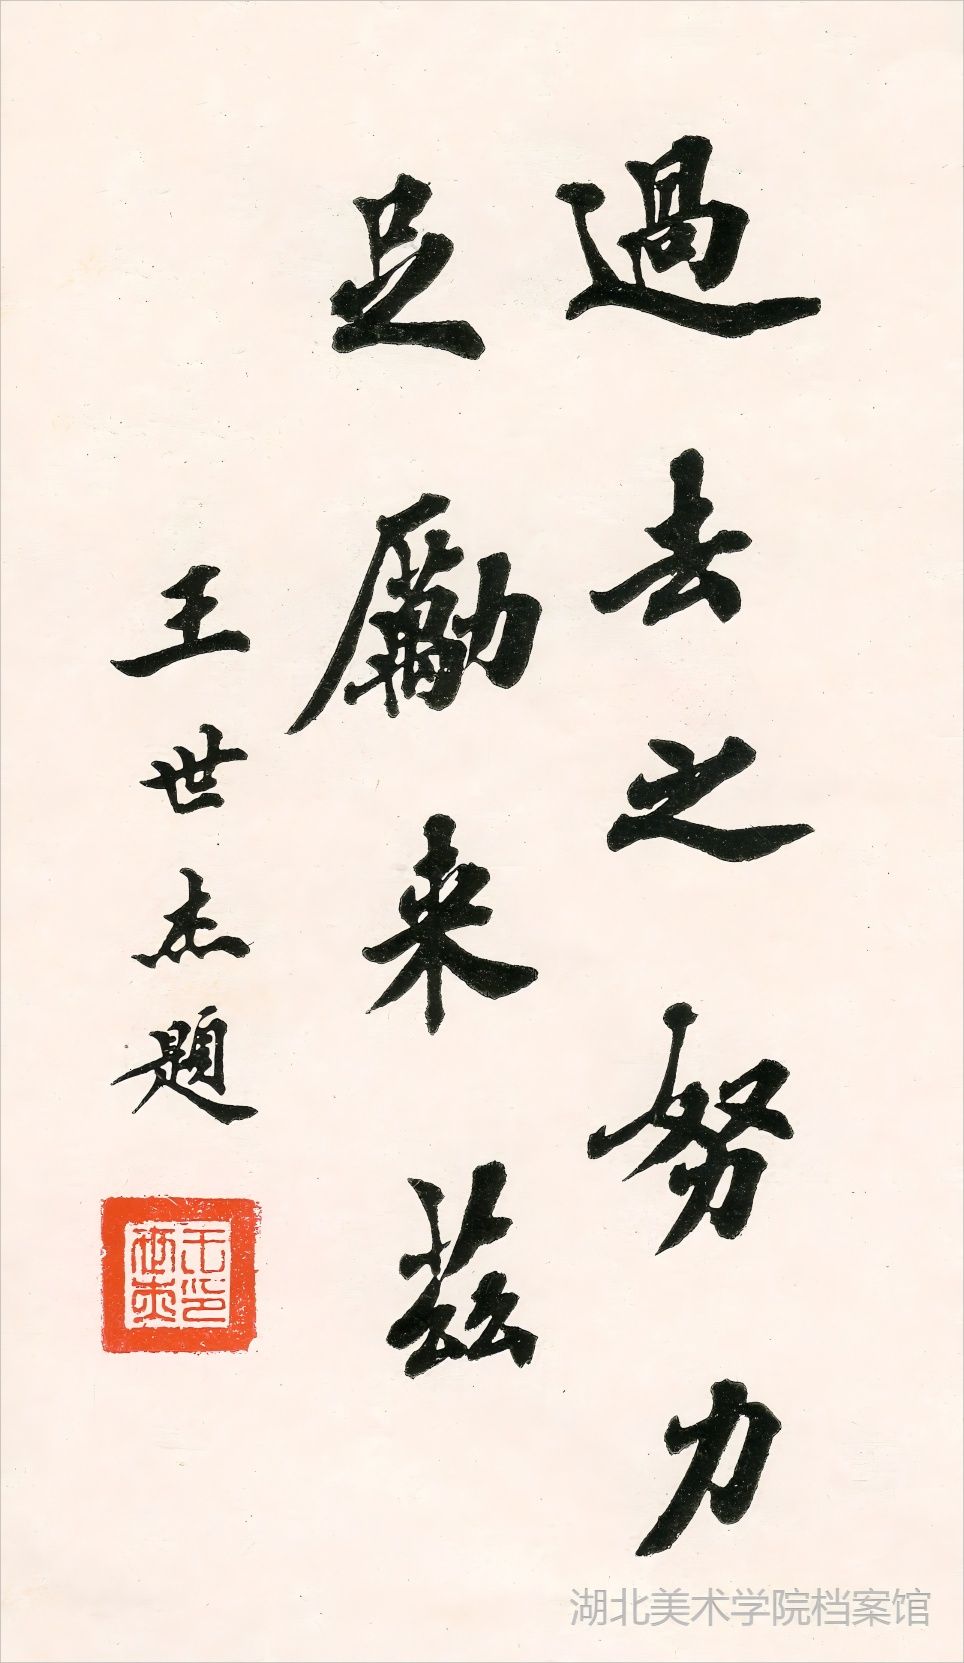 過去之努力
足勵来茲
王世杰題
王世杰印
湖北美术学院档案馆